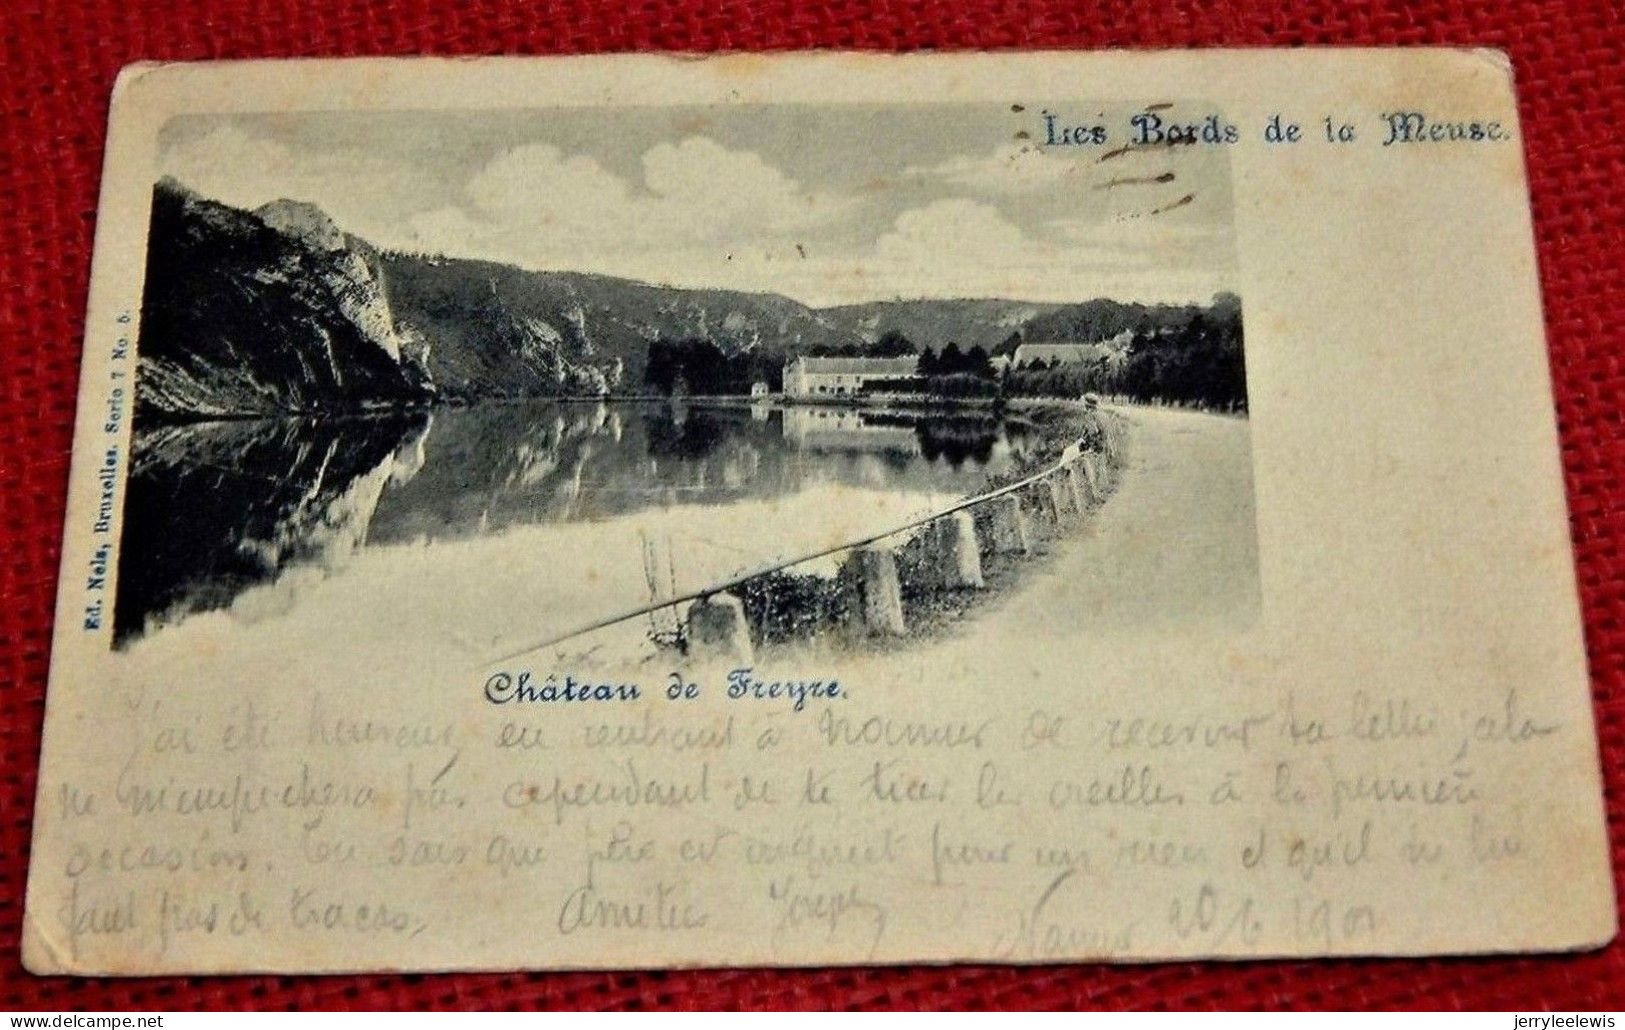 Les Bords de la Meuse.
Ed. Nels, Bruxelles. Serie 7 No. 5.
Château de Freyre.
J'ai été heureux, en rentrant à Namur de recevoir ta lettre; cela
ne m'empêchera pas cependant de te tirer les oreilles à la première
occasion. Tu sais que père est inquiet pour un rien et qu'il ne lui
faut pas de tracas. Amitiés Joseph
Namur 20/6 1901
Delcampe.net
jerryleelewis